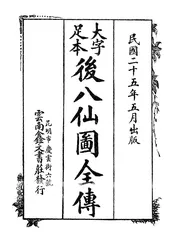 民國二十五年五月出版
大字
足本
後八仙圖全傳
昆明市慶雲街六號
雲南鑫文書莊發行